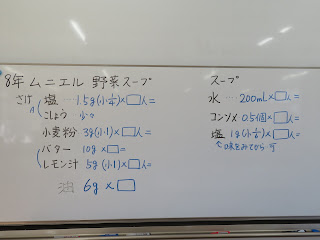 8年 ムニエル 野菜スープ
さけ 塩 … 1.5g(小1/4)×□人=
こしょう 少々
小麦粉 3g(小1)×□人=
バター 10g×□=
レモン汁 5g(小1)×□人=
油 6g×□
スープ
水 … 200mL×□人=
コンソメ 0.5個×□人=
塩 1g(小1/6)×□人=
↑味をみてから 可